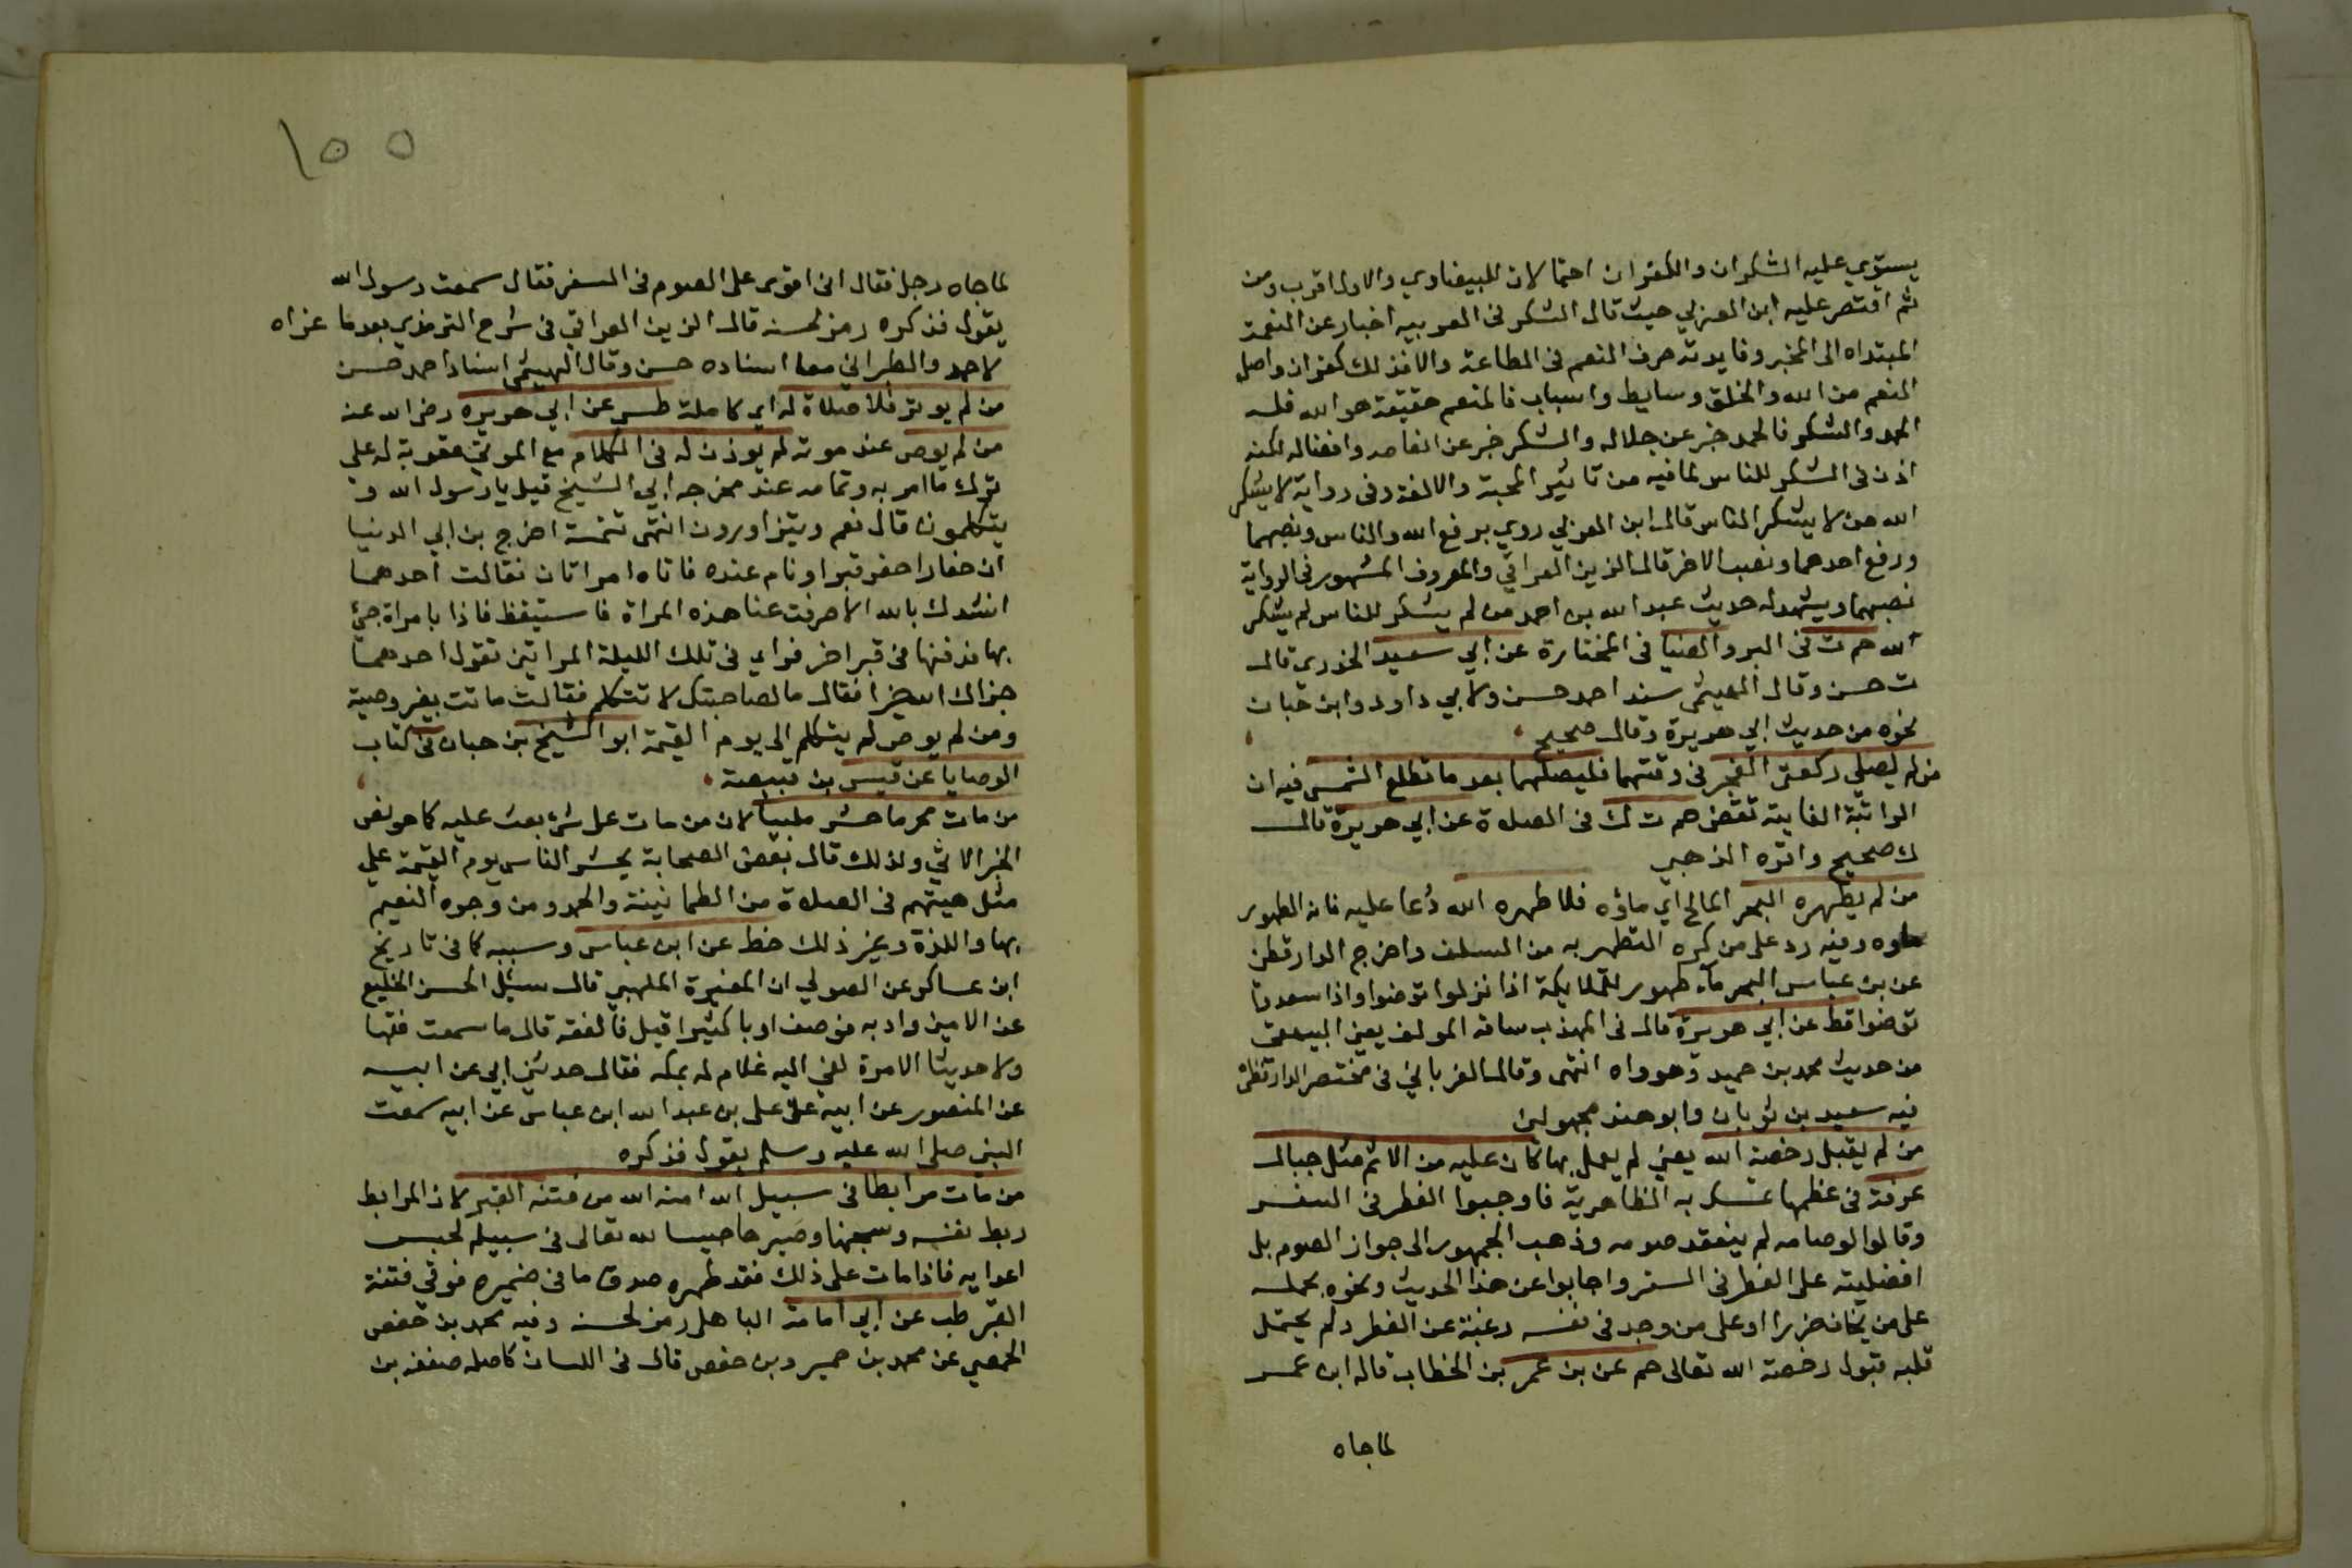 يستوي عليه الشكران والكفران احتمالان للبيضاوي والاول اقرب ومن
ثم اقتصر عليه ابن العربي حيث قال الشكر في العربيه اخبار عن النعمة
المبتداه الى المخبر وفايدته صرف النعم في الطاعة والا فذلك كفران واصل
النعم من الله والخلق وسايط واسباب فالمنعم حقيقة هو الله فله
الحمد والشكر فالحمد خبر عن جلاله والشكر خبر عن انعامه وافضاله لكنه
اذن في الشكر للناس لما فيه من تاثير المحبة والالفة وفى رواية لا يشكر
الله من لا يشكر الناس قال ابن العربي روي برفع الله والناس ونصبهما
ورفع احدهما ونصب الاخر قال الزين العراقي والمعروف المشهور في الرواية
نصبهما ويشهد له حديث عبد الله بن احمد من لم يشكر للناس لم يشكر
الله حم ت في البر والضيا في المختارة عن ابي سعيد الخدري قال
ت حسن وقال الهيثمى سند احمد حسن ولابي داود وابن حبان
نحوه من حديث ابي هريرة وقال صحيح
من لم يصلي ركعتي الفجر في وقتهما فليصلهما بعد ما تطلع الشمس فيه ان
الراتبة الفايتة تقضى حم ت ك في الصلاة عن ابي هريرة قال
ك صحيح واقره الذهبي
من لم يطهره البحر المالح اي ماؤه فلا طهره الله دُعا عليه فانه الطهور
ماوه وفيه رد على من كره التطهر به من السلف واخرج الدارقطن
عن بن عباس البحر ماء طهور للملايكة اذا نزلوا توضوا واذا صعدوا
توضوا قط عن ابي هريرة قال في المهذب ساقه المولف يعني البيهقى
من حديث محمد بن حميد وهو واه انتهى وقال الغرياني في مختصر الدارقطن
فيه سعيد بن ثوبان وابو هند مجهولين
من لم يقبل رخصة الله يعني لم يعمل بها كان عليه من الاثم مثل جبال
عرفة في عظمها تمسك به الظاهرية فاوجبوا الفطر في السفر
وقالوا لو صامه لم ينعقد صومه وذهب الجمهور الى جواز الصوم بل
افضليته على الفطر في السفر واجابوا عن هذا الحديث ونحوه بحمله
على من يخاف ضررا او على من وجد في نفسه رغبة عن الفطر ولم يحتمل
قلبه قبول رخصة الله تعالى حم عن بن عمر بن الخطاب قاله ابن عمر
لما جاه
١٥٥
لما جاه رجل فقال انى اقوى على الصوم فى السفر فقال سمعت رسول الله
يقول فذكره رمز لحسنه قال الزين العراقي في شرح الترمذي بعد ما عزاه
لاحمد والطبراني معا اسناده حسن وقال الهيثمى اسناد احمد حسن
من لم يوتر فلا صلاة له اي كاملة طس عن ابي هريره رضى الله عنه
من لم يوص عند موته لم يوذن له في الكلام مع الموتى عقوبة له على
ترك ما امر به وتمامه عند مخرجه ابي الشيخ قيل يا رسول الله و
يتكلمون قال نعم ويتزاورون انتهى تتمة اخرج بن ابي الدنيا
ان حفارا حفر قبرا ونام عنده فاتاه امراتان فقالت احدهما
انشدك بالله الا صرفت عنا هذه المراة فاستيقظ فاذا بامراة جئ
بها فدفنها في قبر اخر فراي في تلك الليلة المراتين تقول احدهما
جزاك الله خيرا فقال ما لصاحبتك لا تتكلم فقالت ماتت بغير وصية
ومن لم يوص لم يتكلم الى يوم القيمة ابو الشيخ بن حبان في كتاب
الوصايا عن قيس بن قبيصة
من مات محرما حشر ملبيا لان من مات على شئ بعث عليه كما هو نص
الخبر الاتي ولذلك قال بعض الصحابة يحشر الناس يوم القيمة علي
مثل هيتهم في الصلاة من الطمانينة والهدو ومن وجوه النعيم
بها واللذة وغير ذلك خط عن ابن عباس وسببه كما في تاريخ
ابن عساكر عن الصولي ان المغيرة المهلبي قال سئل الحسن الخليع
عن الامين وادبه فوصف ادبا كثيرا قيل فالفقه قال ما سمعت فقها
ولا حديثا الا مرة نعي اليه غلام له بمكه فقال حدثني ابي عن ابيه
عن المنصور عن ابيه عن علي بن عبد الله ابن عباس عن ابيه سمعت
النبي صلى الله عليه وسلم يقول فذكره
من مات مرابطا في سبيل الله امنه الله من فتنه القبر لان المرابط
ربط نفسه وسجنها وصَيرها حبيسا لله تعالى في سبيله لحبس
اعدايه فاذا مات على ذلك فقد ظهر صدق ما في ضميره فوقي فتنة
القبر طب عن ابي امامة الباهلى رمز لحسنه وفيه محمد بن حفص
الحمصي عن محمد بن حمير وبن حفص قال في اللسان كاصله ضعفه بن